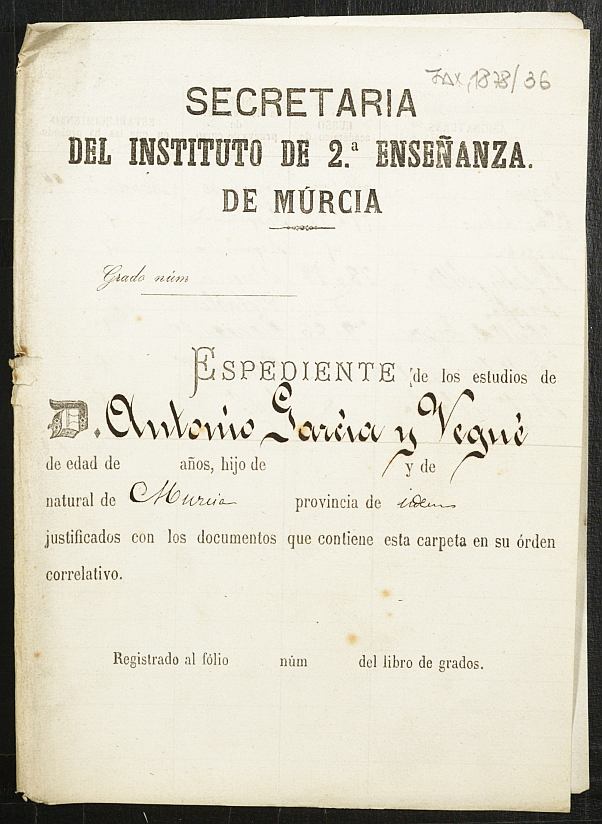 JAX,1878/36
SECRETARIA
DEL INSTITUTO DE 2.ª ENSEÑANZA.
DE MÚRCIA
Grado núm
ESPEDIENTE de los estudios de
D. Antonio Garcia y Vegué
de edad de años, hijo de y de
natural de Murcia provincia de idem
justificados con los documentos que contiene esta carpeta en su órden
correlativo.
Registrado al fólio núm del libro de grados.